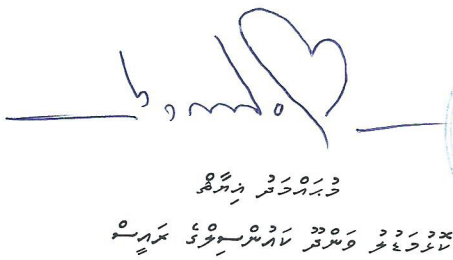 މުޙައްމަދު ޣިޔާޘް
ކޮޅުމަޑުލު ވަންދޫ ކައުންސިލްގެ ރައީސް